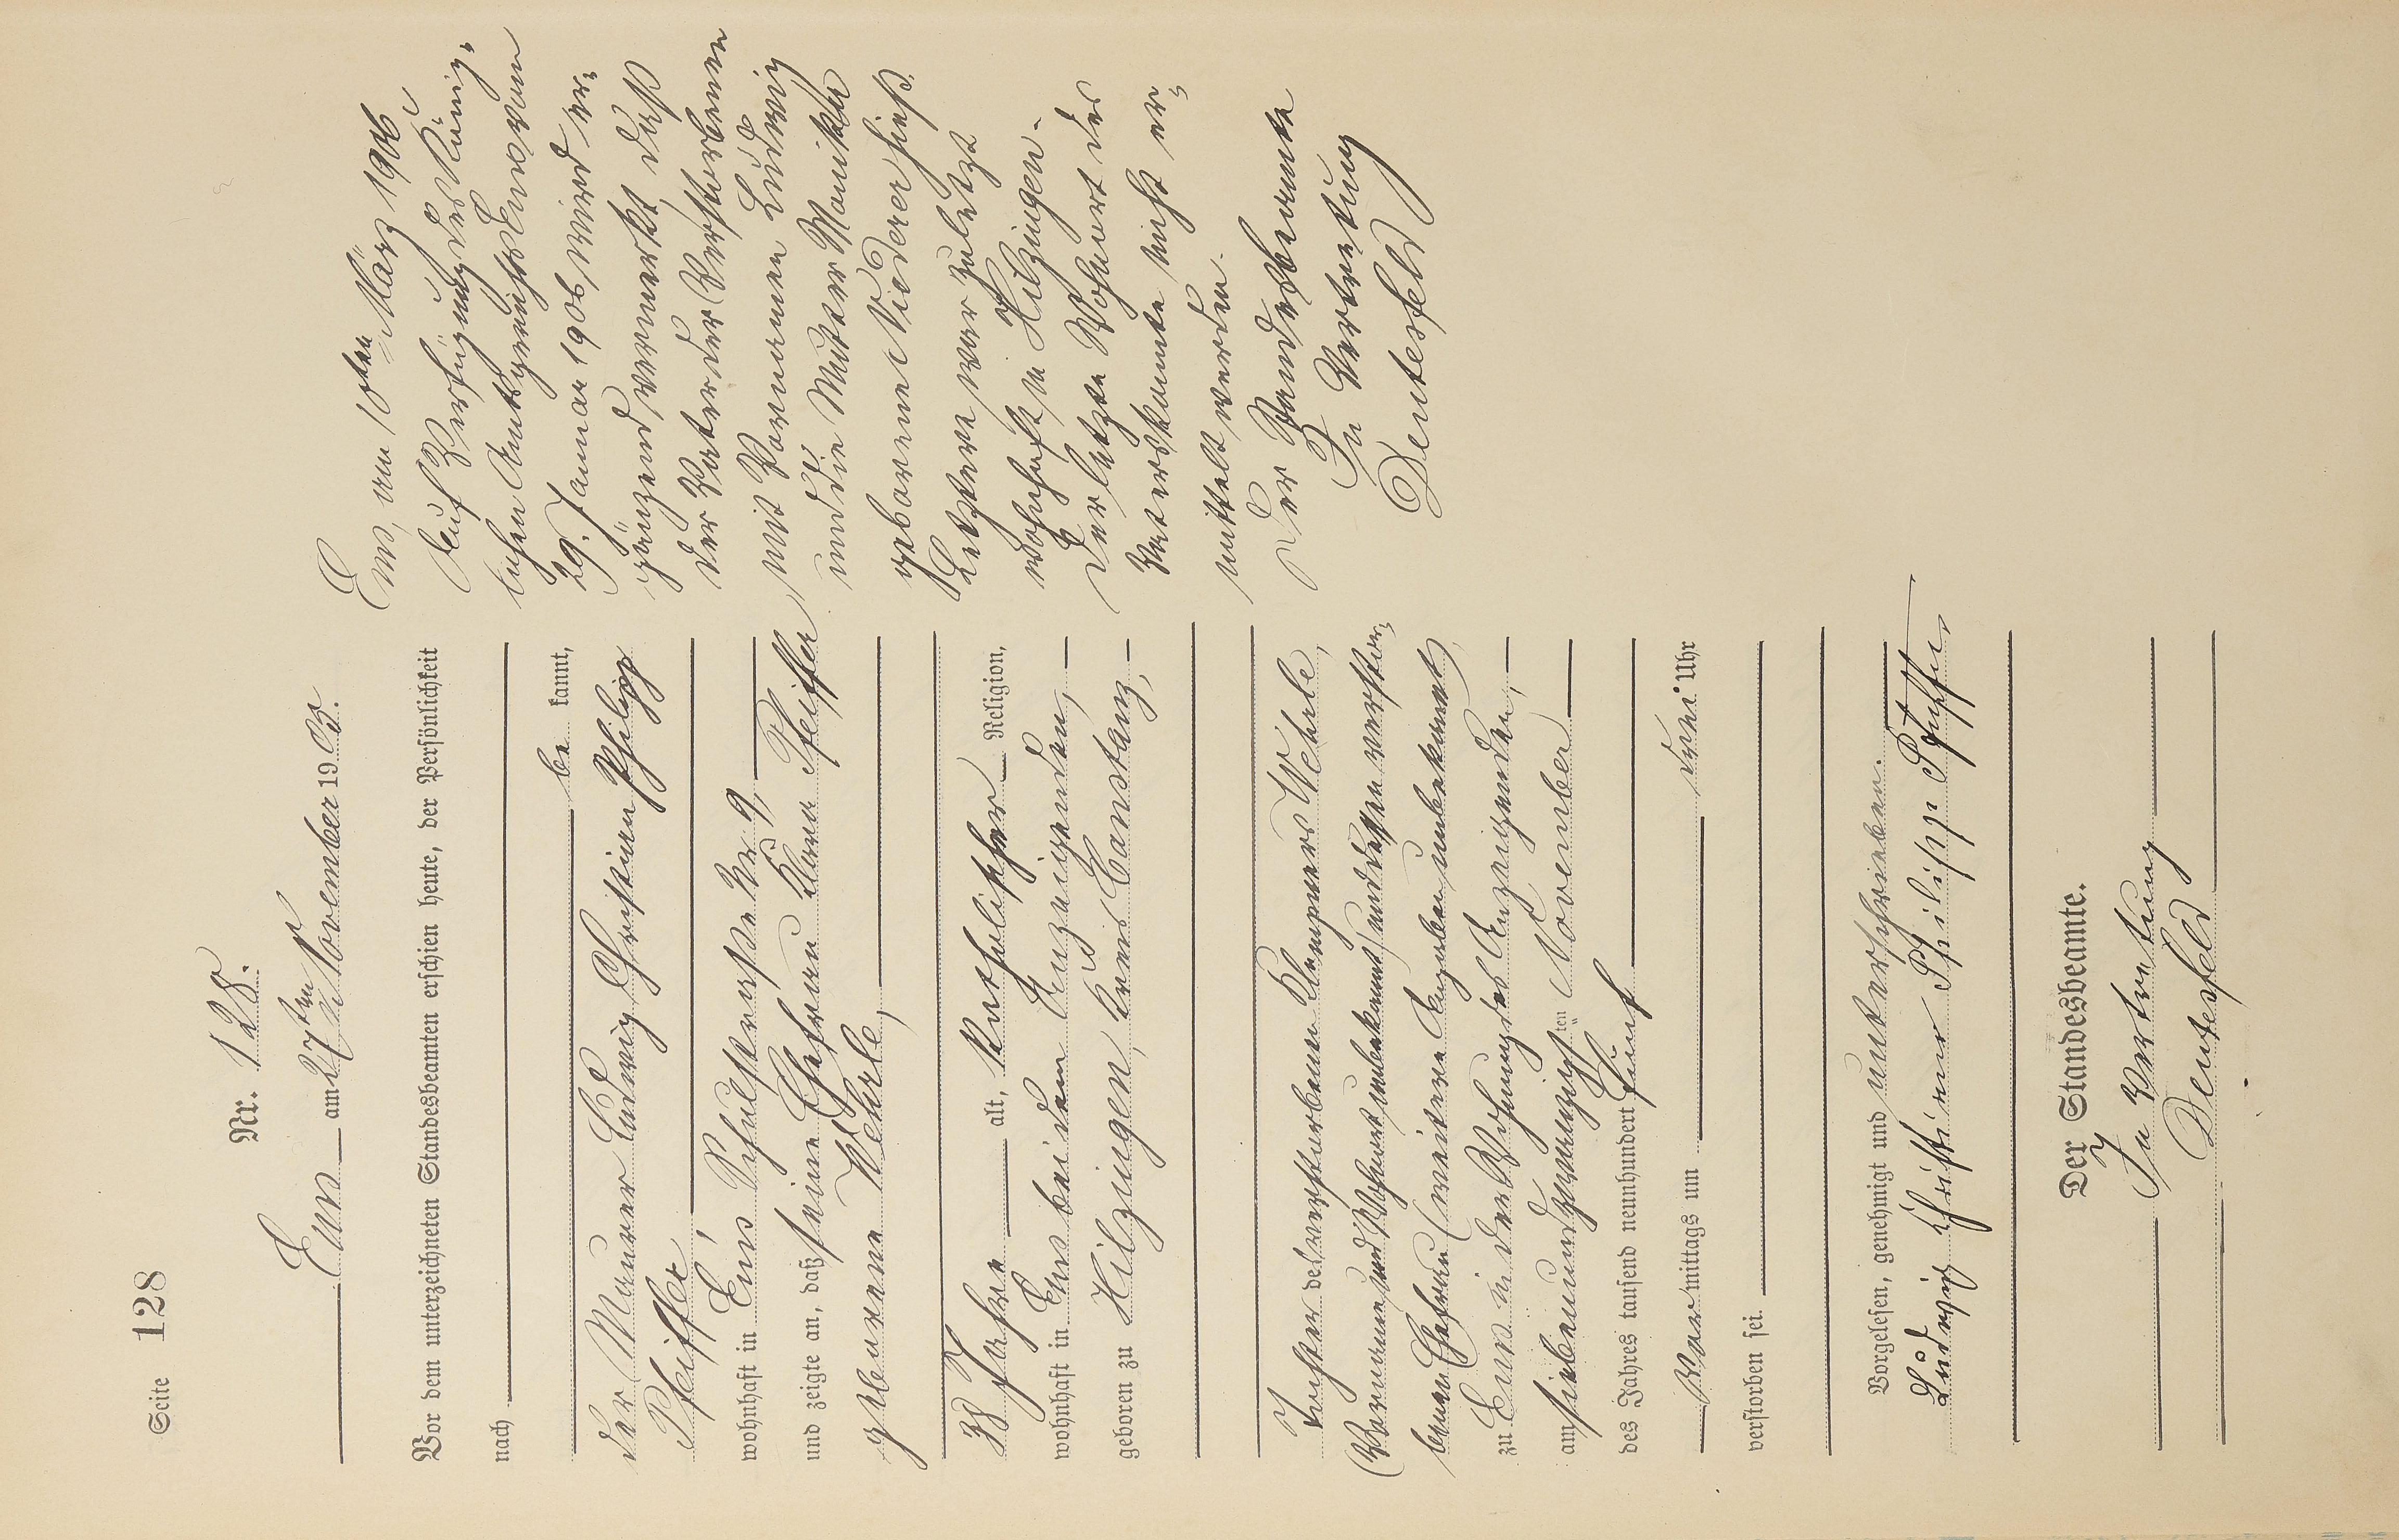 Seite 128
Nr. 128.
Ems am 27ten November 1905.
Vor dem unterzeichneten Standesbeamten erschien heute, der Persönlichkeit
nach
be kannt,
der Maurer Ludwig Christian Philipp
Pfeiffer
wohnhaft in Ems, Schulstraße Nr 9,
und zeigte an, daß seine Ehefrau Klara Pfeiffer
geborene Wehrle,
38 Jahre alt, katholischer Religion,
wohnhaft in Ems bei dem Anzeigenden,
geboren zu Hilzingen, Kreis Constanz,
Tochter des verstorbenen Klempners Wehrle,
(Vorname und Wohnort unbekannt) und dessen verstor-
benen Ehefrau (weitere Angaben unbekannt),
zu Ems in der Wohnung des Anzeigenden,
am siebenundzwanzigsten November
des Jahres tausend neunhundert fünf
Vor mittags um drei Uhr
verstorben sei.
Vorgelesen, genehmigt und unterschrieben.
Ludwig Christian Philipp Pfeiffer
Der Standesbeamte.
In Vertretung
Deutesfeld
Ems, am 10ten März 1906
Auf Verfügung des König-
lichen Amtsgerichts Ems vom
29. Januar 1906 wird er-
gänzend vermerkt, daß
der Vater der Verstorbenen
mit Vornamen Ludwig
und die Mutter Monika
geborene Niederer hieß.
Letztere war zuletzt
wohnhaft in Hilzingen.
Der letzte Wohnort des
Vaters konnte nicht er-
mittelt werden.
Der Standesbeamte
In Vertretung
Deutesfeld